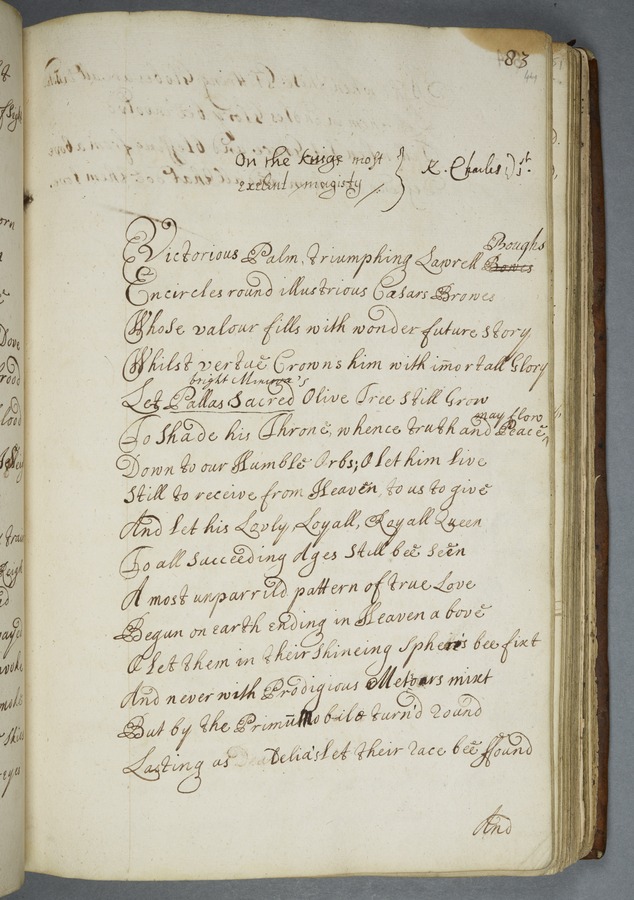 83
44
On the kinge most
exelent magisty
K. Charles 1st.
Boughs
Victorious Palm, triumphing Lawrell Bowes
Encircles round illustrious Cæsars Browes
Whose valour fills with wonder future story
Whilst vertue Crowns him with im̄ortall Glory
bright Minerva's
Let Pallas Sacred Olive Tree still Grow
may flow
To shade his Throne, whence truth and Peace
Down to our Humble Orbs; O let him live
Still to receive from Heaven, to us to give
And let his Lovly, Loyall, Royall Queen
To all Succeeding Ages still bee seen
A most unparrild pattern of true Love
Begun on earth ending in Heaven above
O Let them in their shineing Spheirs bee fixt
And never with Prodigious Meteors mixt
But by the Primū Mobile turn'd round
Lasting as Delia's let their race bee ffound
And